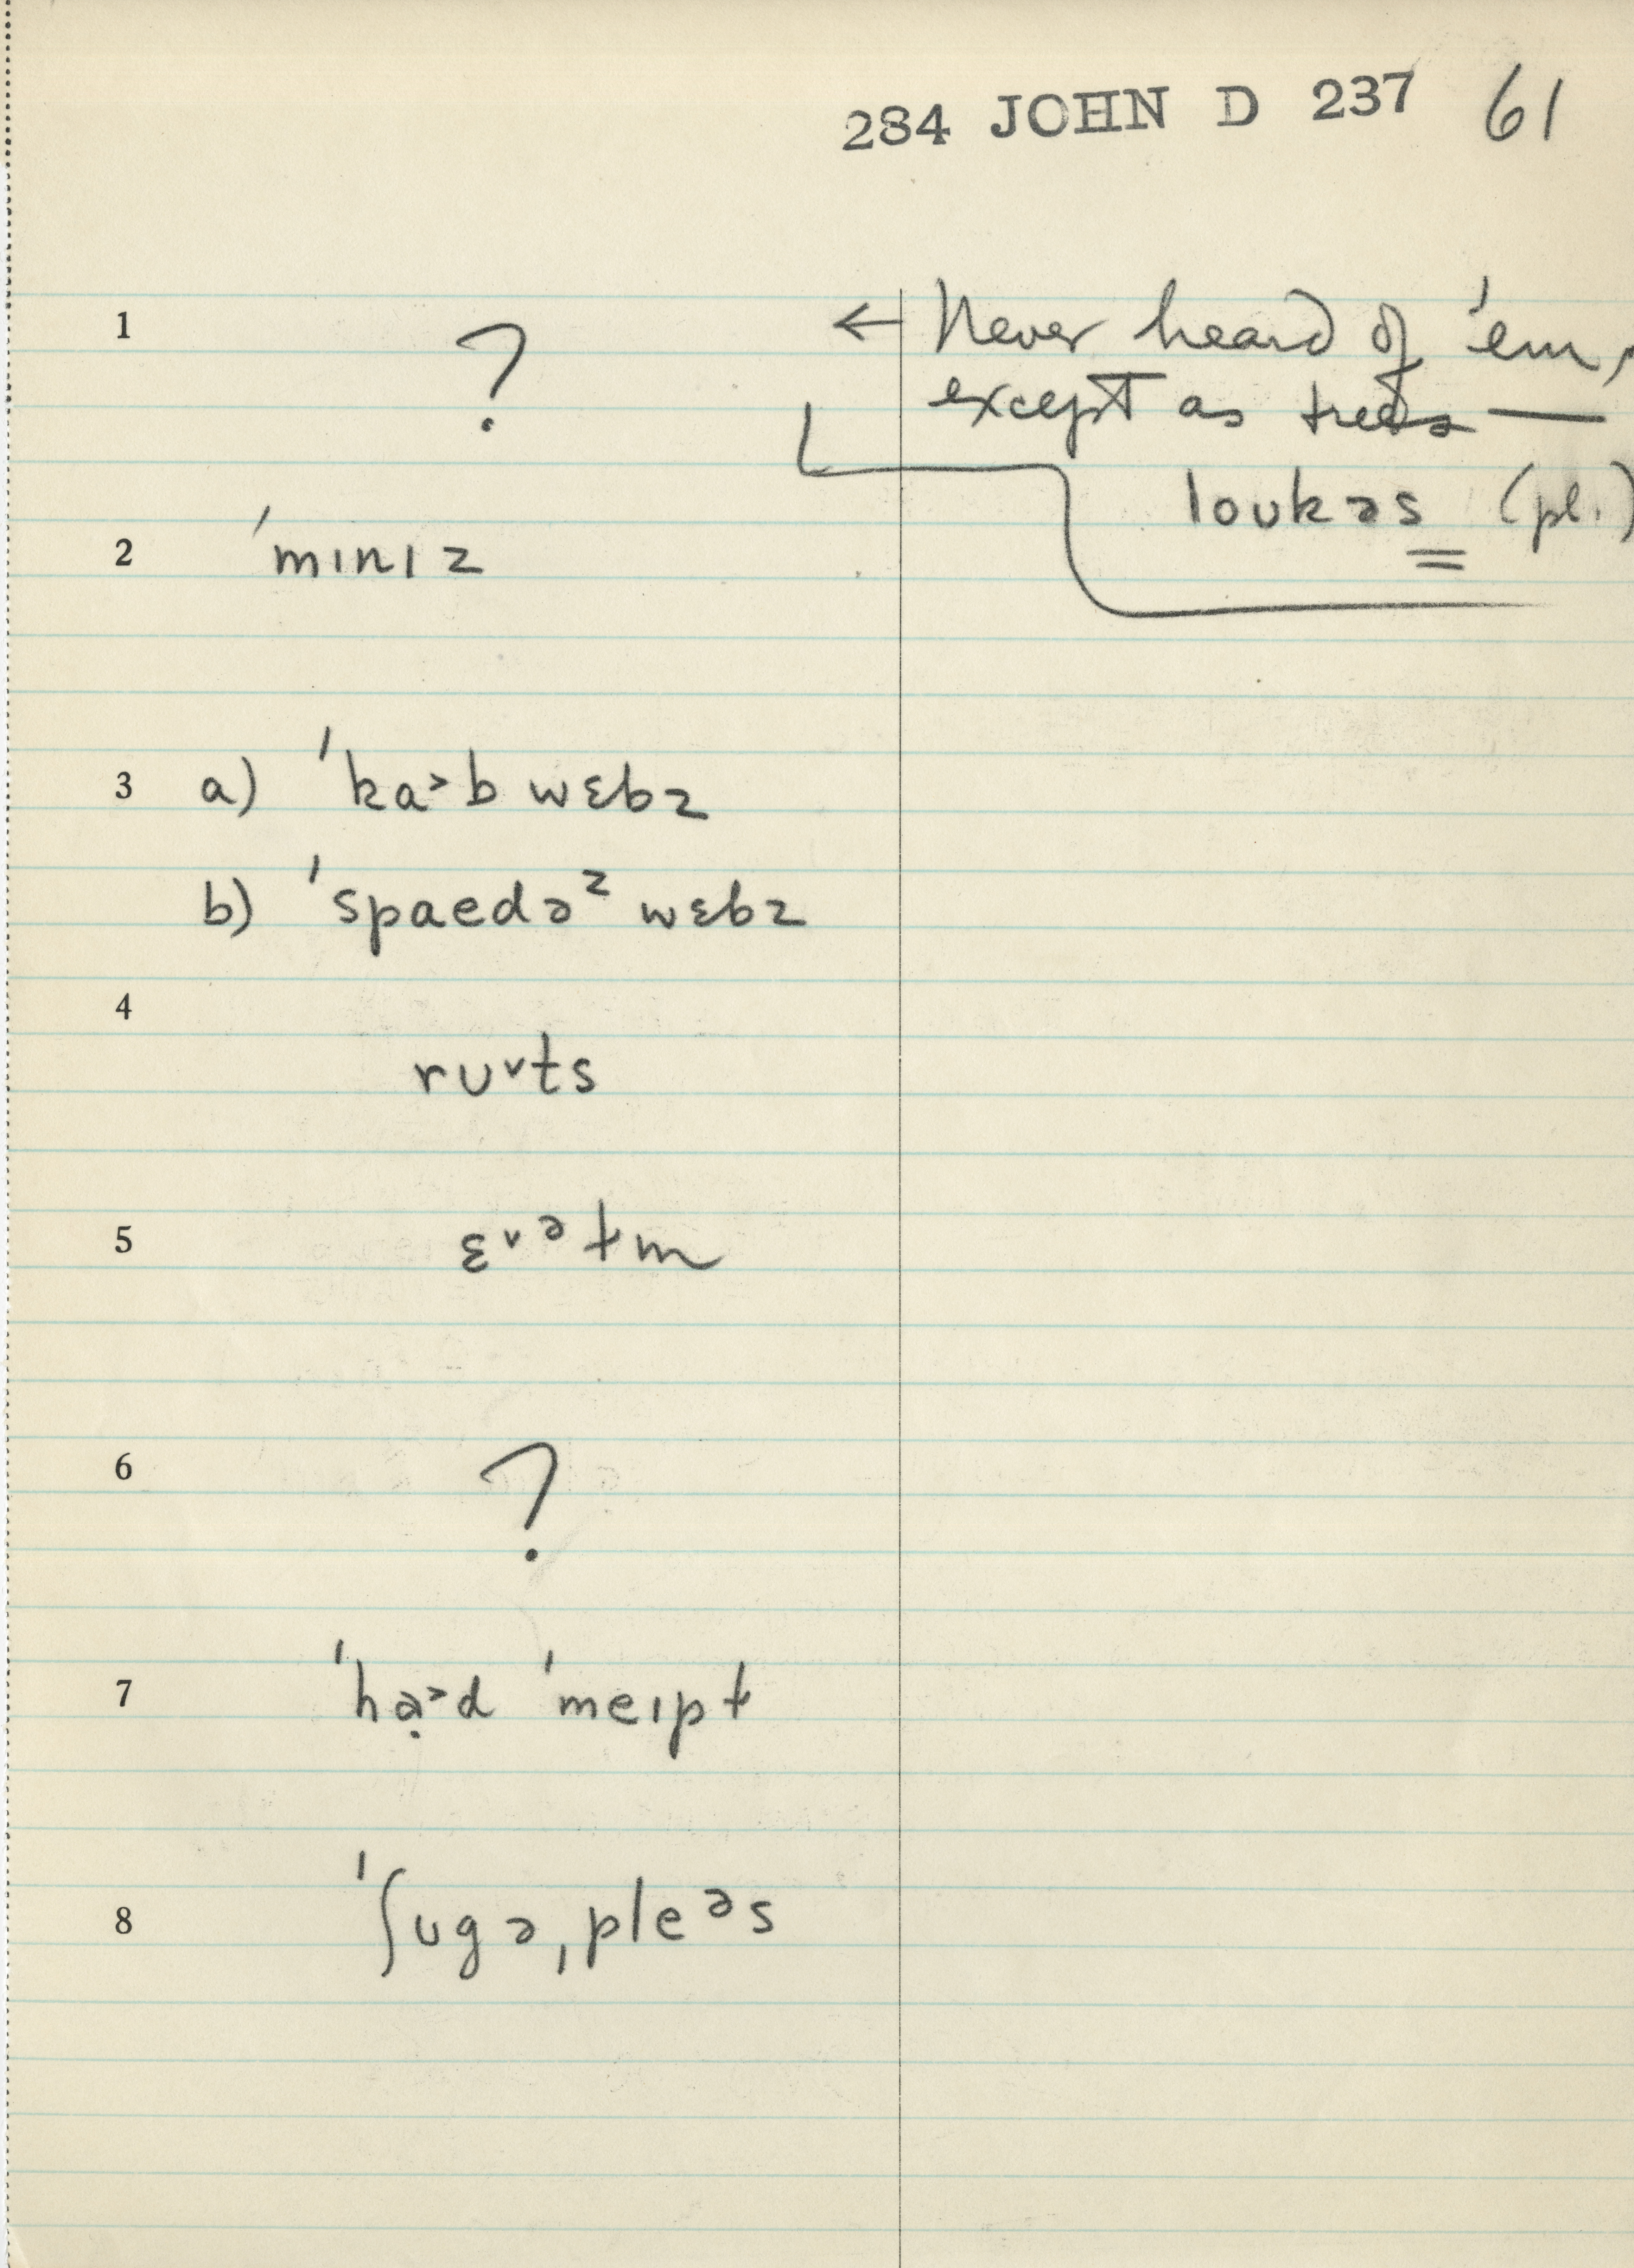 284 JOHN D 237 61
1 ? ← Never heard of 'em,
except as trees —
loukəs (pl.)
2 ˈmɪnɪz
3 a) ˈka˃b wɛbz
b) ˈspaedəᶻ wɛbz
4
rʊ˅ts
5 ɛ˅ᵊɫm
6 ?
7 ˈhạ˃d ˈmeɪpɫ
8 ˈʃʊgəˌpleᵊs